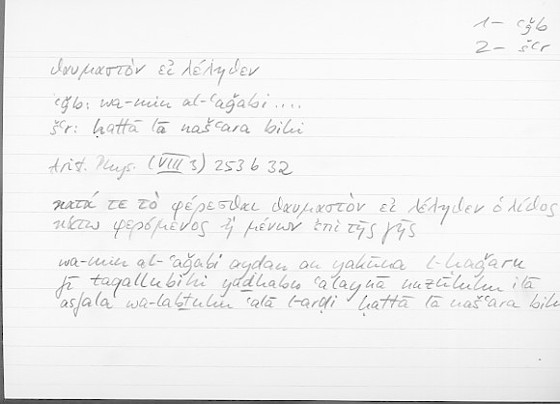 1 – ʿǧb
2 – šʿr
θαυμαστὸν εἰ λέληθεν
ʿǧb: wa-min al-ʿaǧabi ....
šʿr: ḥattā lā našʿara bihi
Arist. Phys. (VIII 3) 253 b 32
κατά τε τὸ φέρεσθαι θαυμαστὸν εἰ λέληθεν ὁ λίθος
κάτω φερόμενος ἢ μένων ἐπὶ τῆς γῆς
wa-min al-ʿaǧabi ayḍan an yakūna l-ḥaǧaru
fī taqallubihi yaḏhabu ʿalaynā nuzūluhu ilā
asfala wa-labṯuhu ʿalā l-arḍi ḥattā lā našʿara bihi